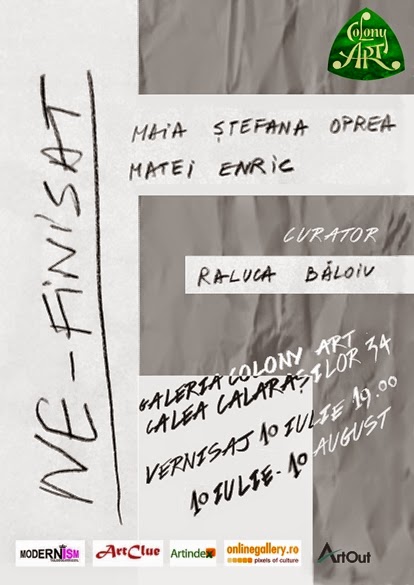 Colony
ART
NE-FINISAT
MAIA ȘTEFANA OPREA
MATEI ENRIC
CURATOR
RALUCA BĂLOIU
GALERIA COLONY ART
CALEA CALARAȘILOR 34
VERNISAJ 10 IULIE 19.00
10 IULIE - 10 AUGUST
MODERNISM
ArtClue
Artindex
onlinegallery.ro
pixels of culture
ArtOut